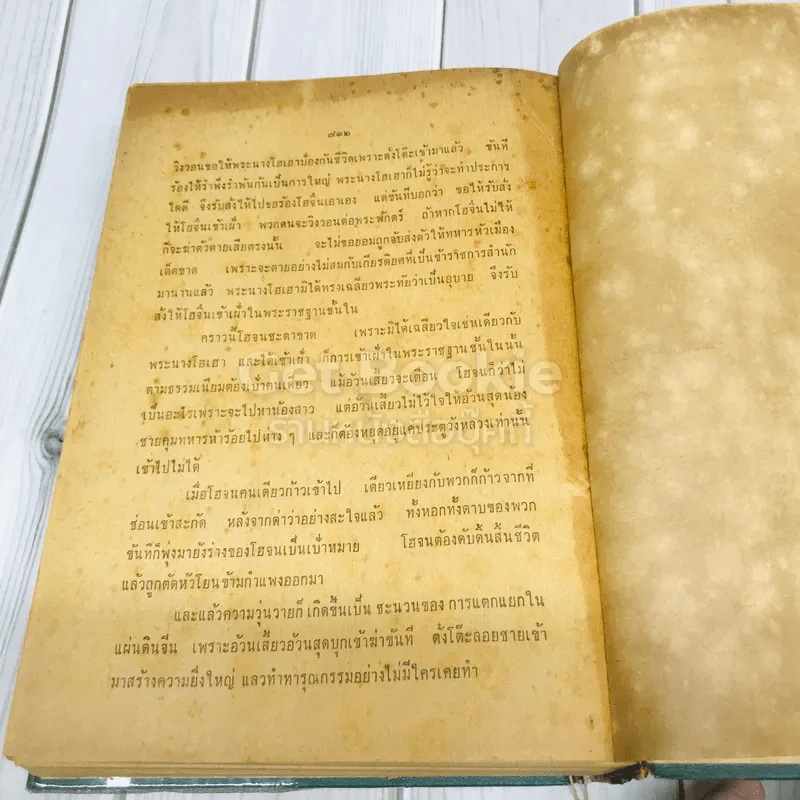 ๗๓๒
วิงวอนขอให้พระนางโฮเฮาป้องกันชีวิตเพราะตั๋งโต๊ะเข้ามาแล้ว ขันที
ร้องไห้รำพึงรำพันกันเป็นการใหญ่ พระนางโฮเฮาก็ไม่รู้ว่าจะทำประการ
ใดดี จึงรับสั่งให้ไปขอร้องโฮจิ๋นเอาเอง แต่ขันทีบอกว่า ขอให้รับสั่ง
ให้โฮจิ๋นเข้าเฝ้า พวกตนจะวิงวอนต่อพระพักตร์ ถ้าหากโฮจิ๋นไม่ให้
ก็จะฆ่าตัวตายเสียตรงนั้น จะไม่ขอยอมถูกจับส่งตัวให้ทหารหัวเมือง
เด็ดขาด เพราะจะตายอย่างไม่สมกับเกียรติยศที่เป็นข้าราชการสำนัก
มานานแล้ว พระนางโฮเฮามิได้ทรงเฉลียวพระทัยว่าเป็นอุบาย จึงรับ
สั่งให้โฮจิ๋นเข้าเฝ้าในพระราชฐานชั้นใน
คราวนี้โฮจนชะตาขาด เพราะมิได้เฉลียวใจเช่นเดียวกับ
พระนางโฮเฮา และได้เข้าเฝ้า ก็การเข้าเฝ้าในพระราชฐานชั้นในนั้น
ตามธรรมเนียมต้องเข้าคนเดียว แม้อ้วนเสี้ยวจะเตือน โฮจนก็ว่าไม่
เป็นอะไรเพราะจะไปหาน้องสาว แต่อ้วนเสี้ยวไม่ไว้ใจให้อ้วนสุดน้อง
ชายคุมทหารห้าร้อยไปห่าง ๆ และก็ต้องหยุดอยู่แค่ประตูวังหลวงเท่านั้น
เข้าไปไม่ได้
เมื่อโฮจนคนเดียวก้าวเข้าไป เตียวเหยียงกับพวกก็ก้าวจากที่
ซ่อนเข้าสะกัด หลังจากด่าว่าอย่างสะใจแล้ว ทั้งหอกทั้งดาบของพวก
ขันทีก็พุ่งมายังร่างของโฮจนเป็นเป้าหมาย โฮจนต้องดับดิ้นสิ้นชีวิต
แล้วถูกตัดหัวโยนข้ามกำแพงออกมา
และแล้วความวุ่นวายก็ เกิดขึ้นเป็น ชะนวนของ การแตกแยกใน
แผ่นดินจีน เพราะอ้วนเสี้ยวอ้วนสุดบุกเข้าฆ่าขันที ตั้งโต๊ะลอยชายเข้า
มาสร้างความยิ่งใหญ่ แลวทำทารุณกรรมอย่างไม่มีใครเคยทำ
Get Bookie
ร้านหนังสือบุ๊คกี้